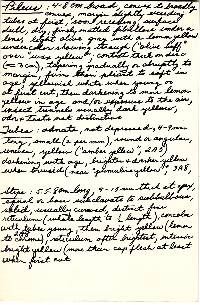 Pileus: 4-8 cm broad, convex to broadly
convex, margin slightly exceeding
tubes at first, soon decurving; surface
dull, dry, matted fibrillose under a
lens, light olive grey with a lemon yellow
undercolor showing through ("olive buff"
over "citron yellow"), context thick on disc
(= 2 cm), tapering gradually or abruptly to
margin, firm then pliant & soft in
age, yellowish white when young or
at first cut, then darkening to more lemon
yellow in age and/or exposure to the air,
insect tunnels usually dark yellow;
odor & taste not distinctive

Tubes: adnate, not depressed, 4-9 mm
long, small (2 per mm), round to angular,
uneven, yellow ("amber yellow", 2A3)
darkening with age, brighter & darker yellow
when bruised (near "primuline yellow", 3A8,

Stipe: 5.5-8 cm long, 9-15 mm thick at apex,
equal or base subclavate to subbulbous,
solid, usually curved, distinct fine
reticulum (whole length to ½ length), concolor
with tubes young, then bright yellow (lemon
to chrome), reticulum often brightest, interior
bright yellow (more than cap flesh) at least
when first cut